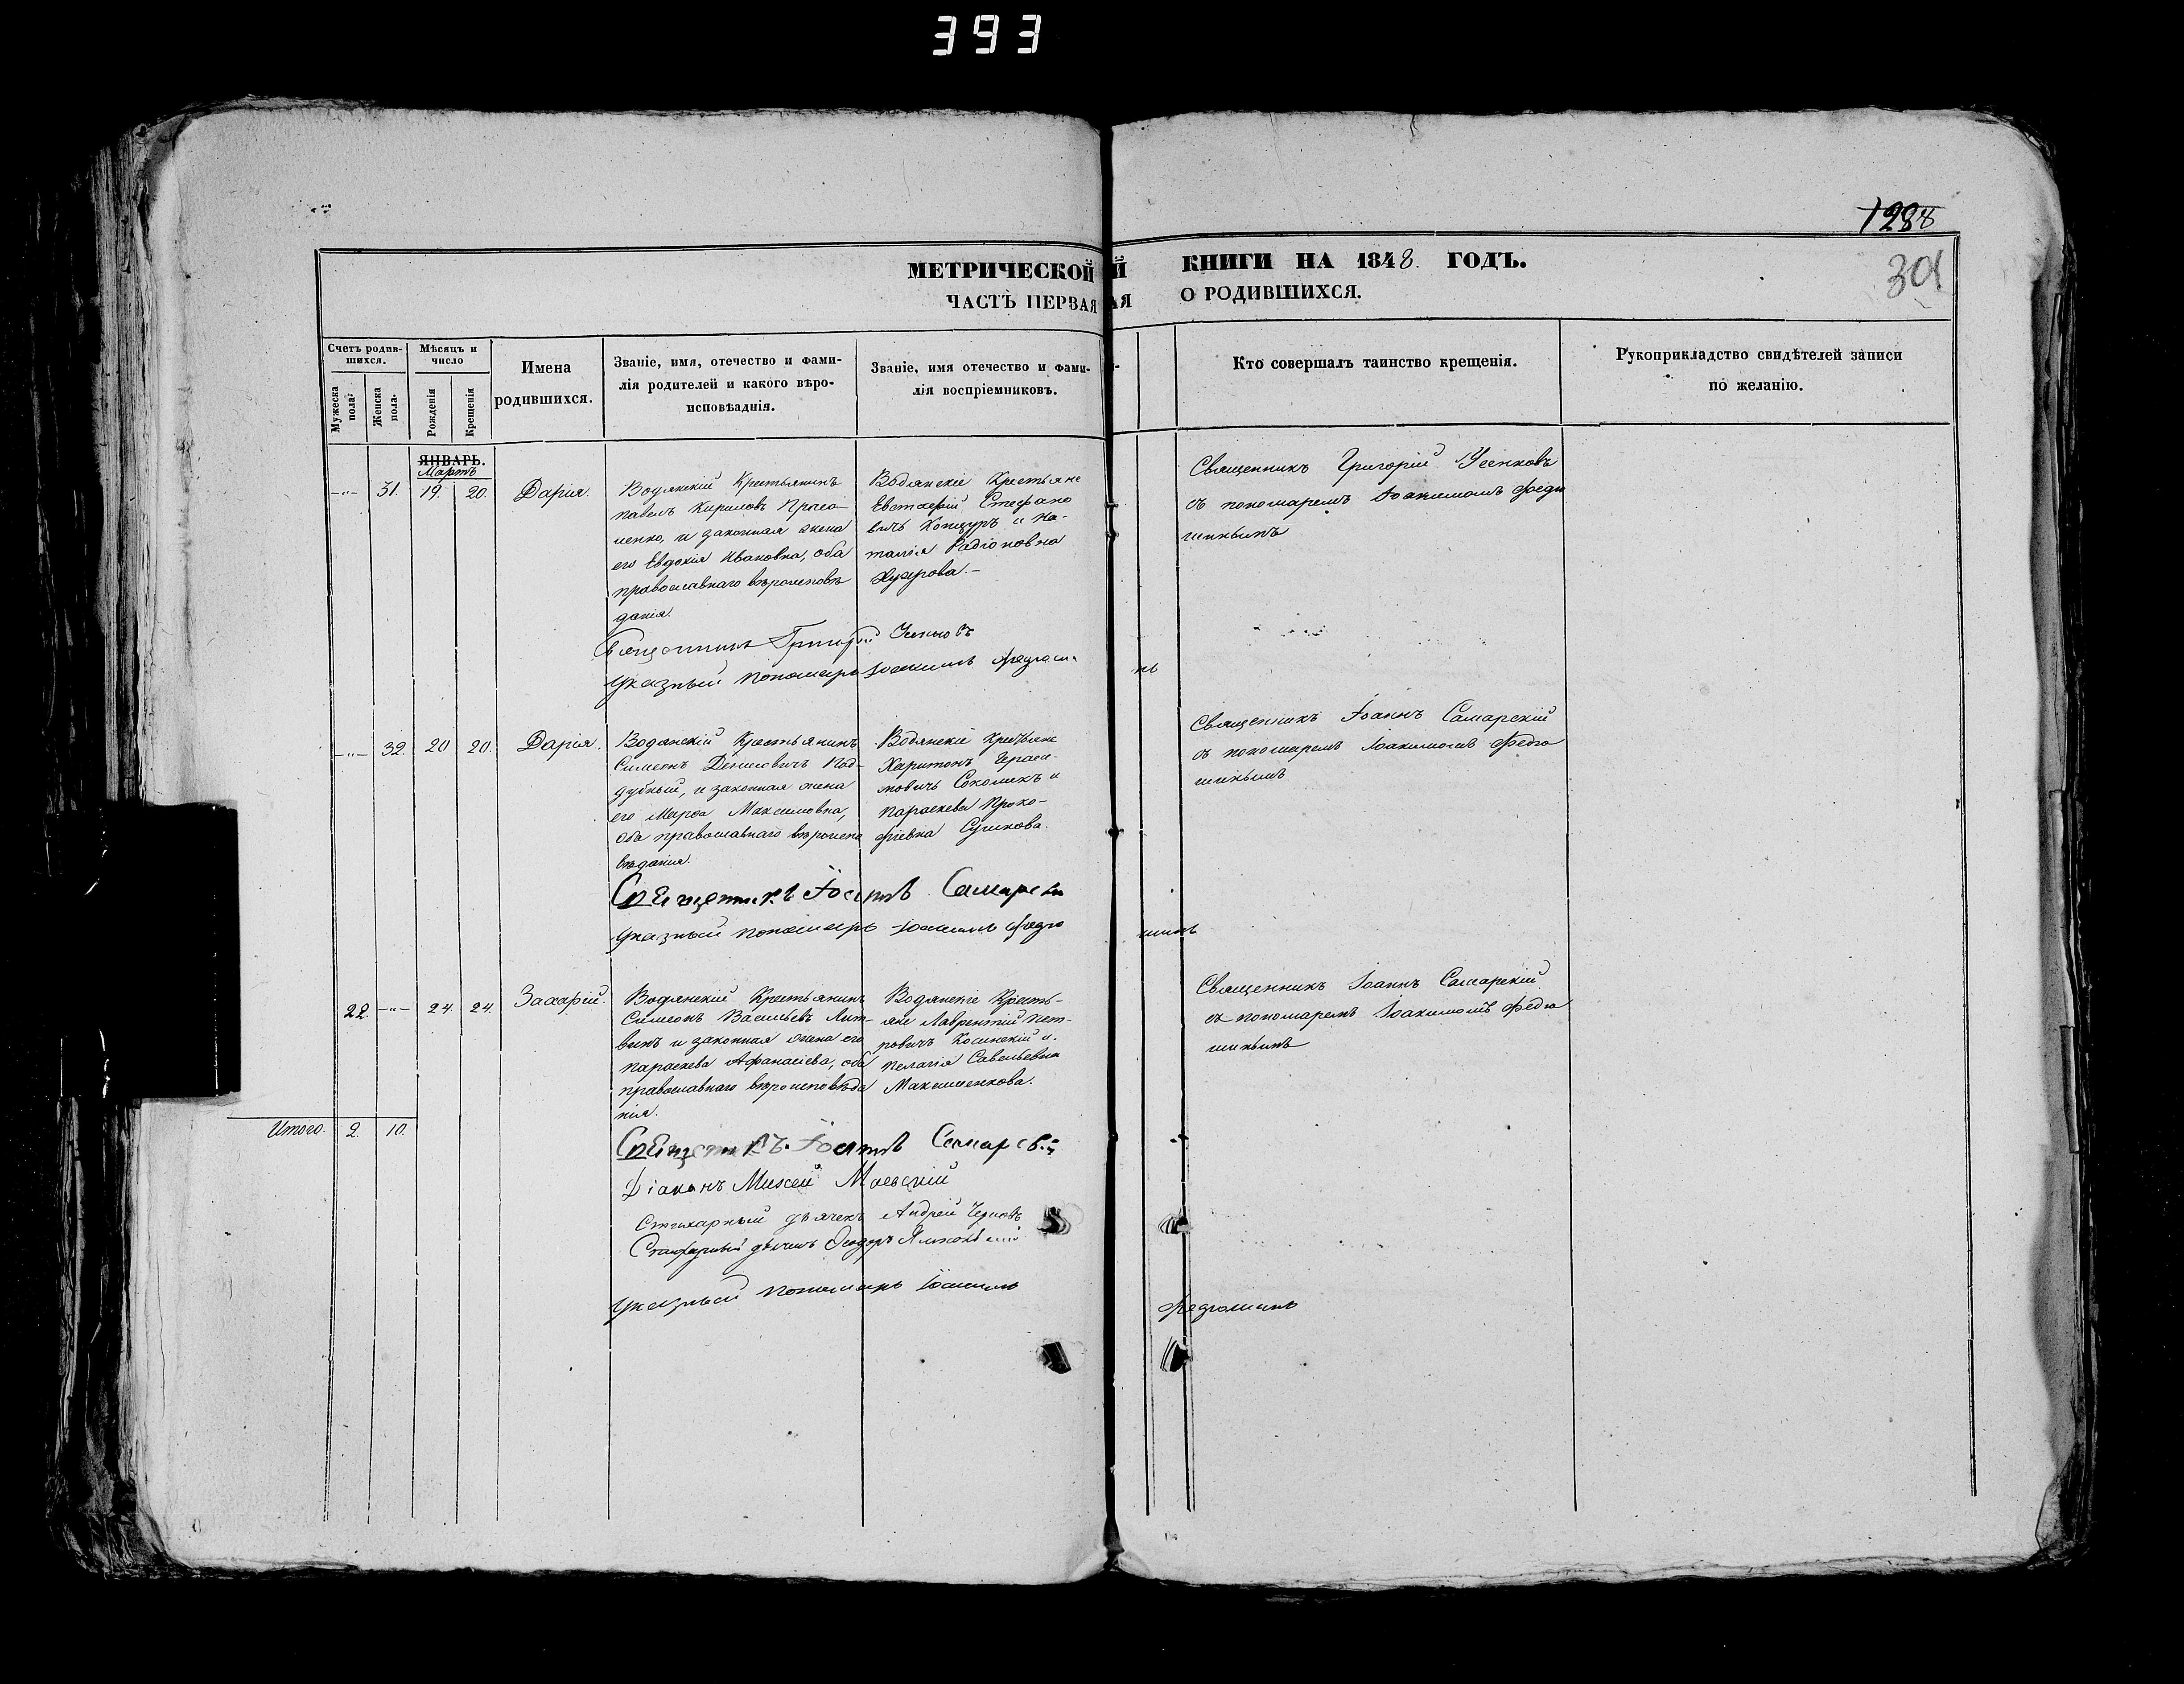 393
1288
301
МЕТРИЧЕСКОЙ КНИГИ НА 1848. ГОДЪ.
ЧАСТЬ ПЕРВАЯ О РОДИВШИХСЯ.
Счетъ родив-
шихся.
Мужеска
пола.
Женска
пола.
Мѣсяцъ и
число
Рожденія
Крещенія
Имена
родившихся.
Званіе, имя, отечество и фами-
лія родителей и какого вѣро-
исповѣаднія.
Званіе, имя отечество и фами-
лія воспріемниковъ.
Кто совершалъ таинство крещенія.
Рукоприкладство свидѣтелей записи
по желанію.
ЯНВАРЬ.
Мартъ
-"- 31. 19. 20. Дарія.
Водянскій Крестьянинъ
Павелъ Кириловъ
и законная жена
его Евдокія Ивановна, оба
православнаго вѣроисповѣ
данія.
Водянскіе Крестьяне
Евстафій Стефано
вичъ и На-
талія Радіоновна
Священникъ Григорій Усенковъ
съ пономаремъ Іоакимомъ Федю
шинымъ
Священникъ Григорій Усенковъ
Указный пономарь Іоакимъ Федюши
нъ
-"- 32. 20 20. Дарія.
Водянскій Крестьянинъ
Симеонъ Денисовичъ Под-
дубный, и законная жена
его Марфа Максимовна,
оба православнаго вѣроиспо
вѣданія.
Водянскіе Крестьяне
Харитонъ Гераси-
мовичъ и
Параскева Проко-
фіевна Сушкова.
Священникъ Іоаннъ Самарскій
съ пономаремъ Іоакимомъ Федю
шинымъ
Священникъ Іоаннъ Самарскій
Указный пономарь Іоакимъ Федю
шинъ
22. -"- 24. 24. Захарій.
Водянскій Крестьянинъ
Симеонъ Васильевъ Лит-
винъ и законная жена его
Параскева Афанасіева, оба
православнаго вѣроисповѣда
нія.
Водянскіе Кресть-
яне Лаврентій Пет-
ровичъ Косинскій и
Пелагія Савельевна
Максименкова.
Священникъ Іоаннъ Самарскій
съ пономаремъ Іоакимомъ Федю
шинымъ
Итого. 2. 10.
Священникъ Іоаннъ Самарскій
Діаконъ Моисей Маевскій
Стихарный дьячекъ Андрей Черновъ
Стихарный дьячекъ Феодоръ
Указный пономарь Іоакимъ
Федюшинъ